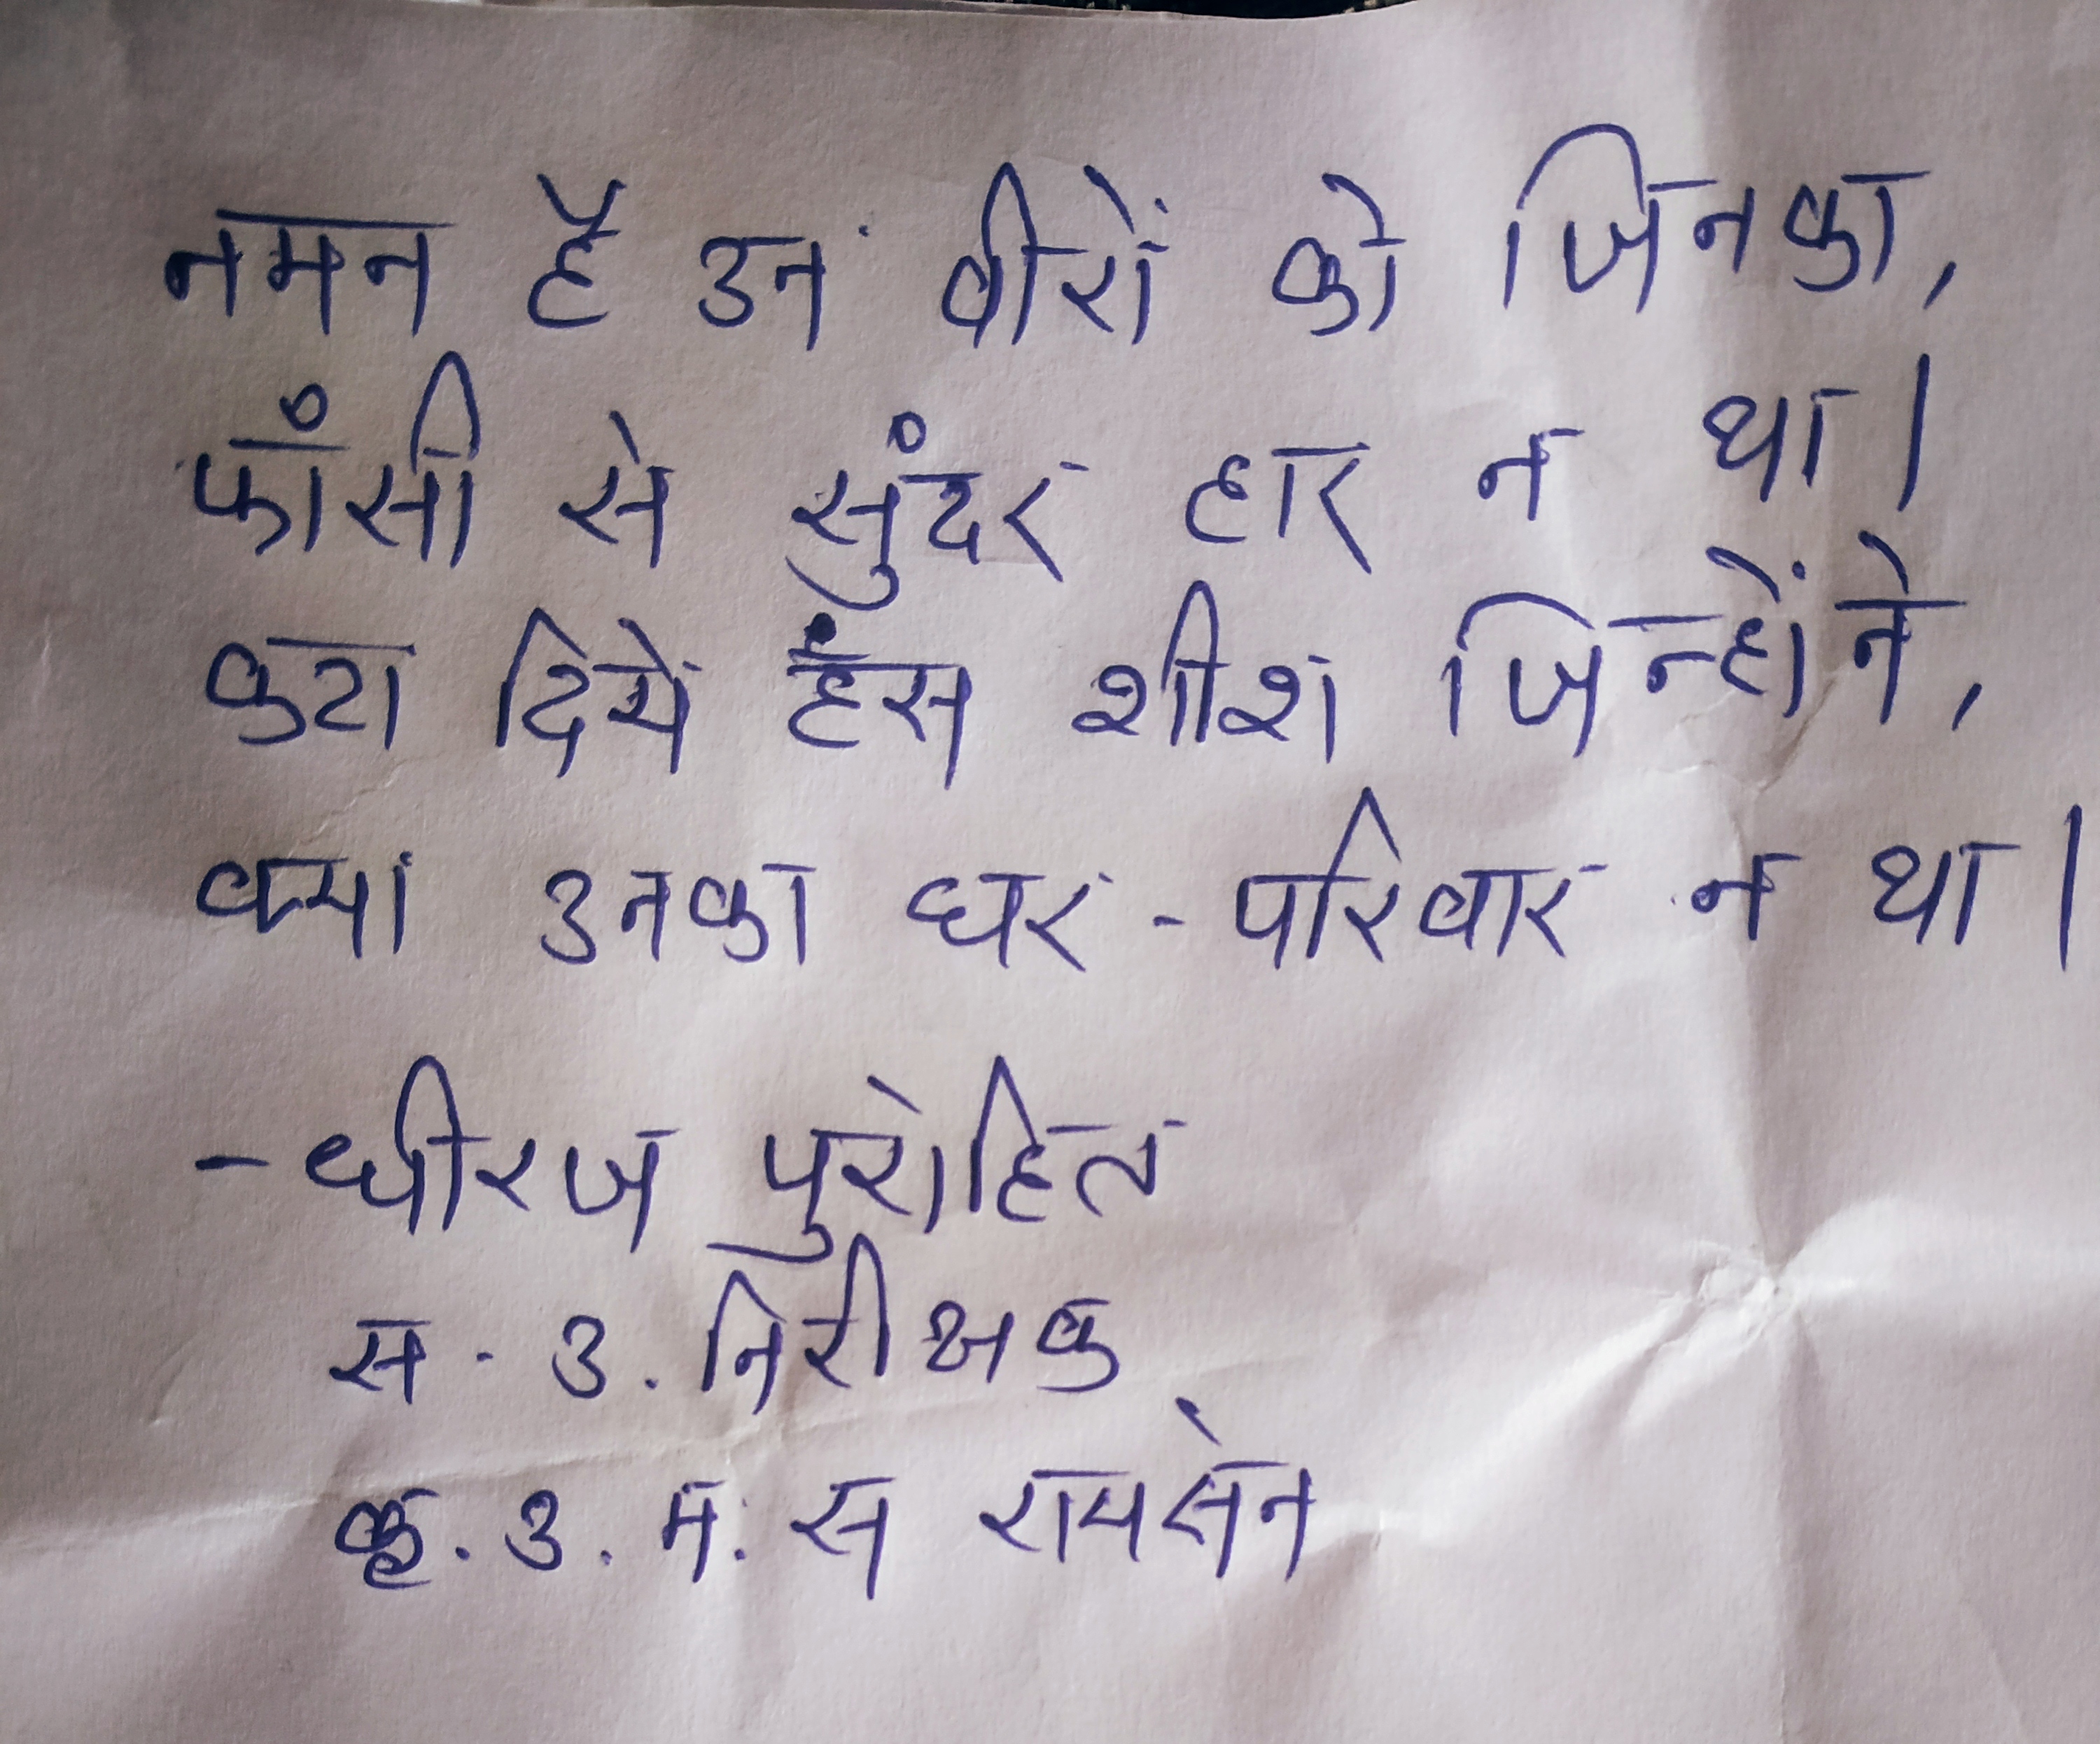 नमन है उन वीरों को जिनका,
फांसी से सुंदर हार न था।
कटा दियें हंस शीश जिन्होंने,
क्या उनका घर - परिवार न था।
- धीरज पुरोहित
स. उ. निरीक्षक
कृ. उ. म. स रायसेन